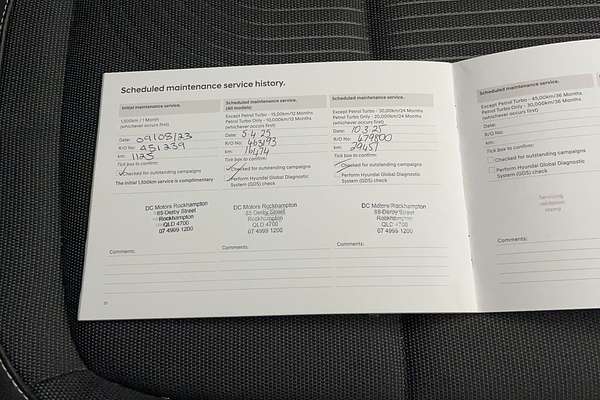 Scheduled maintenance service history.
Initial maintenance service.
1,500km / 1 Month
(whichever occurs first)
Date: 09/03/23
R/O No: 451239
km: 1125
Tick box to confirm:
Checked for outstanding campaigns
The initial 1,500km service is complimentary
DC Motors Rockhampton
85 Derby Street
Rockhampton
QLD 4700
07 4999 1200
Comments:
Scheduled maintenance service.
(All models)
Except Petrol Turbo - 15,000km/12 Months
Petrol Turbo Only - 10,000km/12 Months
(whichever occurs first)
Date:
R/O No: 463193
km: 16474
Tick box to confirm:
Checked for outstanding campaigns
Perform Hyundai Global Diagnostic
System (GDS) check
DC Motors Rockhampton
85 Derby Street
Rockhampton
QLD 4700
07 4999 1200
Comments:
Scheduled maintenance service.
Except Petrol Turbo - 30,000km/24 Months
Petrol Turbo Only - 20,000km/24 Months
(whichever occurs first)
Date: 10.3.25
R/O No: 479800
km: 29451
Tick box to confirm:
Checked for outstanding campaigns
Perform Hyundai Global Diagnostic
System (GDS) check
DC Motors Rockhampton
85 Derby Street
Rockhampton
QLD 4700
07 4999 1200
Comments:
Scheduled maintenance service.
Except Petrol Turbo - 45,000km/36 Months
Petrol Turbo Only - 30,000km/36 Months
(whichever occurs first)
Date:
R/O No:
km:
Tick box to confirm:
Checked for outstanding campaigns
Perform Hyundai Global Diagnostic
System (GDS) check
Comments: